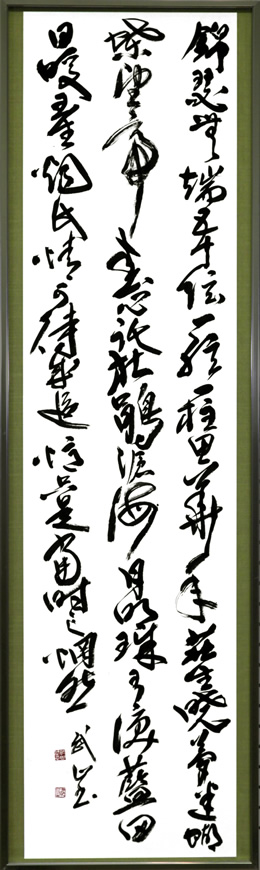 錦瑟無端五十弦一弦一柱思華年莊生曉夢迷蝴
蝶望帝春心託杜鵑滄海月明珠有淚藍田
日暖玉生烟此情可待成追憶只是當時已惘然